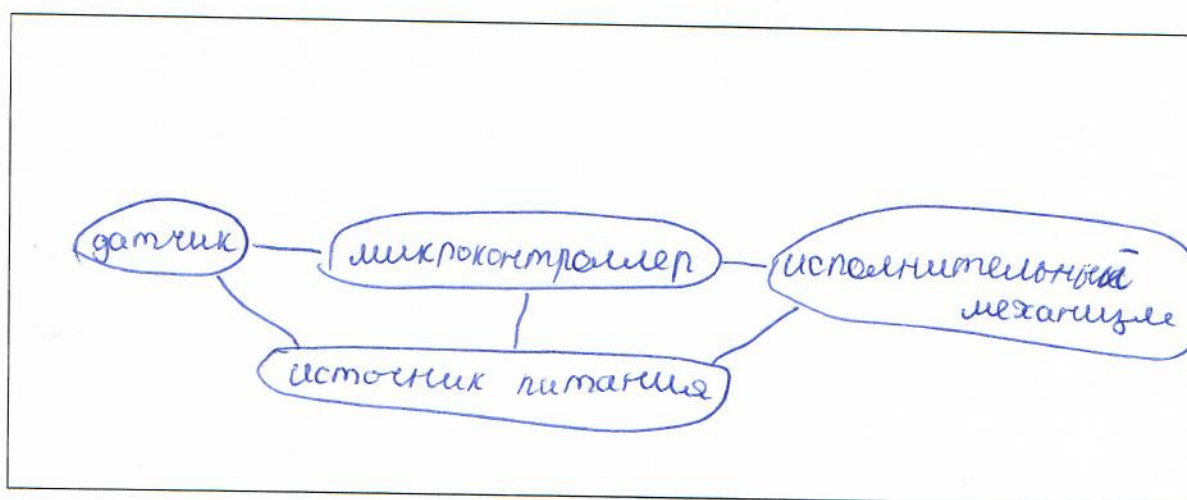 датчик
микроконтроллер
исполнительный
механизм
источник питания